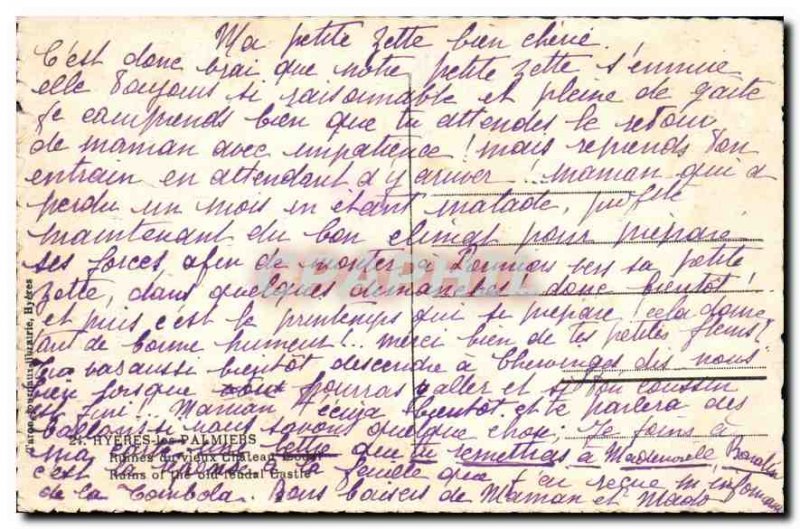 Ma petite Zette bien chérie.
C'est donc vrai que notre petite Zette s'ennuie
elle toujours si raisonnable et pleine de gaité
Je comprends bien que tu attendes le retour
de maman avec impatience ! mais reprends ton
entrain en attendant d'y arriver ! maman qui a
perdu un mois en étant malade, profite
maintenant du bon climat pour préparer
ses forces, afin de monter à vers sa petite
Zette, dans quelques dimanches donc bientôt !
et puis c'est le printemps qui se prépare ! cela donne
tant de bonne humeur ! .. merci bien de tes petites fleurs !
vas aussi bientôt descendre à des nous
bien lorsque pourras aller et si ton cousin
est fini !.. Maman bientôt et te parlera des
si nous savons quelque chose, Je joins à
ma lettre que tu remettras à Mademoiselle
c'est la à la feuille que j'ai reçue m'informant
de la Tombola. Bons baisers de Maman et Mado
21. HYÈRES-les-PALMIERS
Ruines du vieux Château féodal
Ruins of the old feudal Castle
CPAPHIL